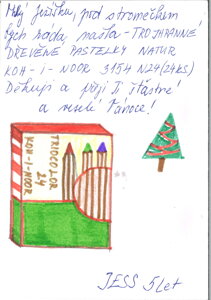 Milý Ježíšku, pod stromečkem
bych ráda našla - TROJHRANNÉ
DŘEVĚNÉ PASTELKY NATUR
KOH - I - NOOR 3154 N24 (24KS)
Děkuji a přeji Ti šťastné
a veselé Vánoce!
TRIOCOLOR
24
KOH-I-NOOR
JESS 5 let